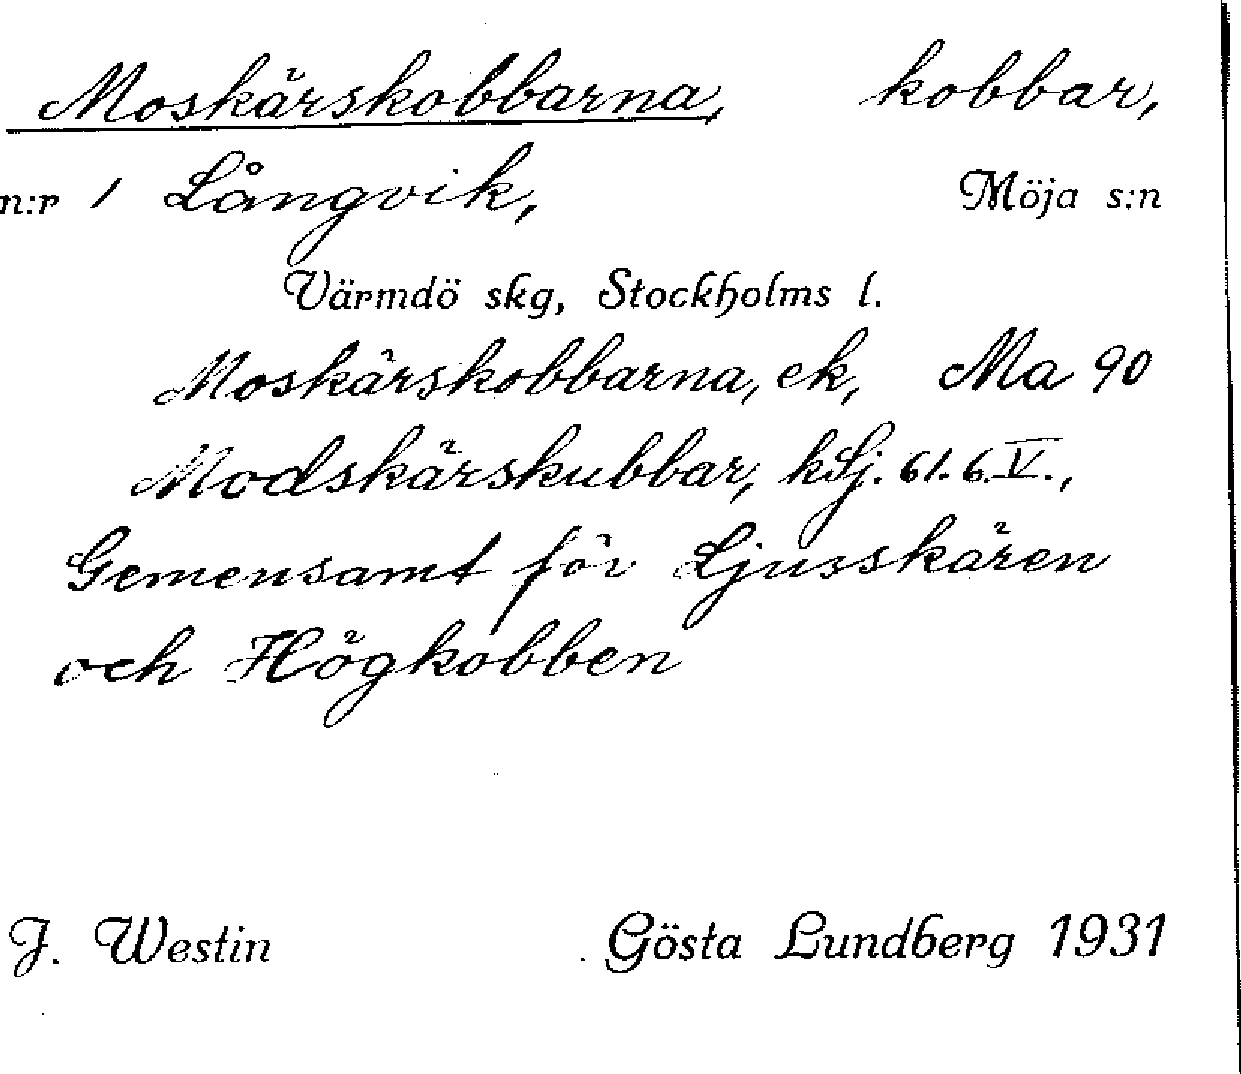 Moskärskobbarna, kobbar,
n:r 1 Långvik, Möja s:n
Värmdö skg, Stockholms l.
Moskärskobbarna, ek, Ma 90
Modskärskubbar, kSj. 61.6.V.,
Gemensamt för Ljusskären
och Högkobben
J. Westin Gösta Lundberg 1931